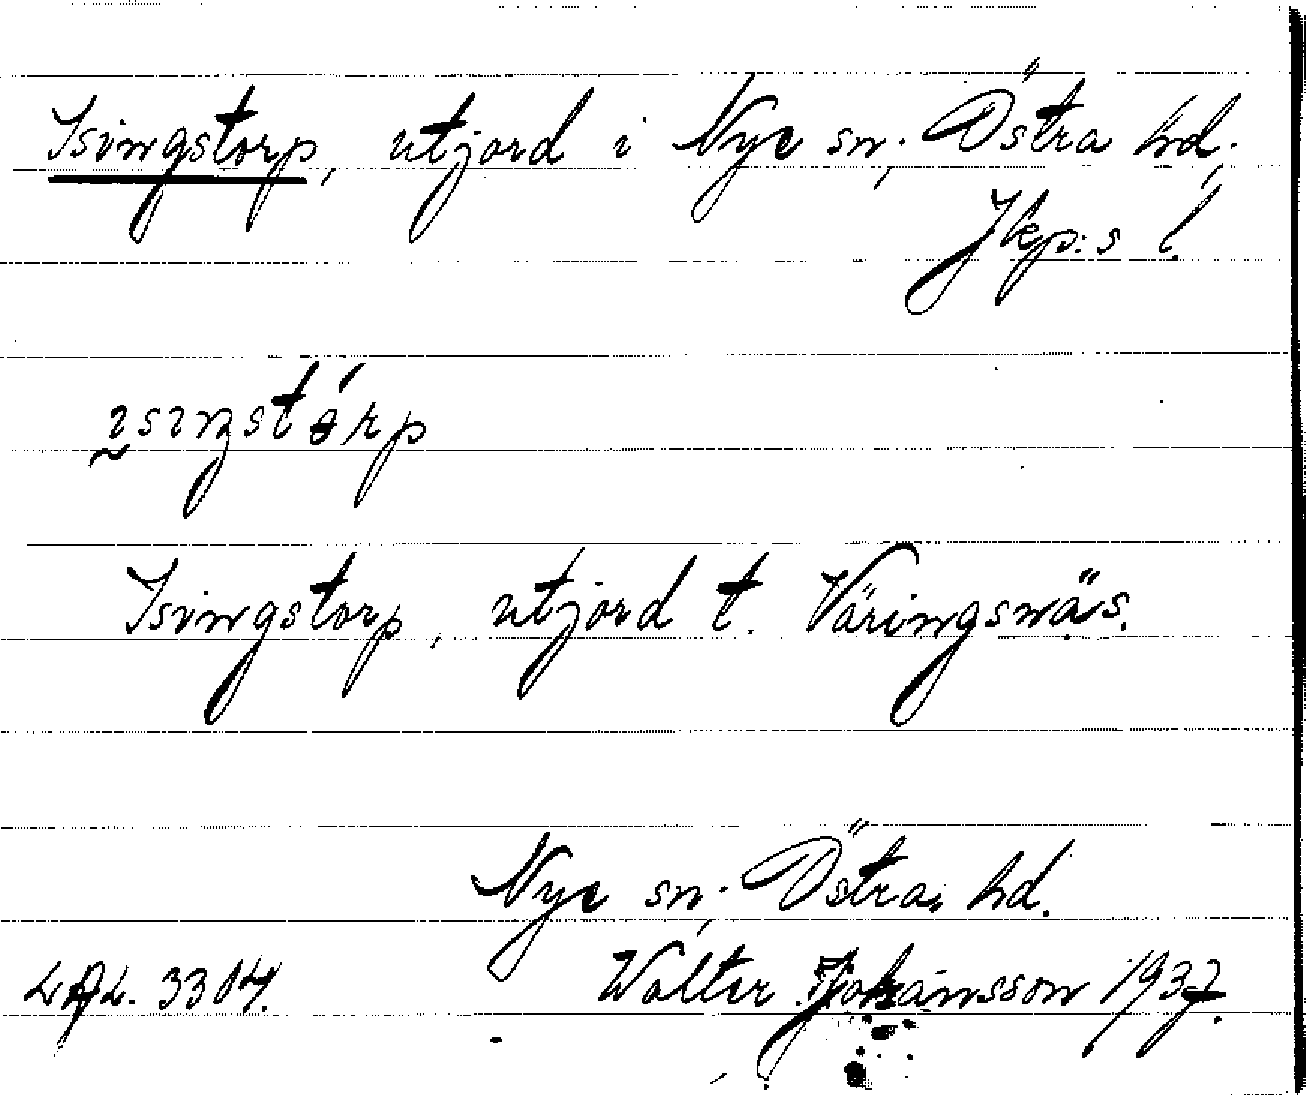 Isingstorp, utjord i Nye sn, Östra hd,
Jkp:s l.
Isingstorp, utjord t. Väringsnäs.
Nye sn, Östra hd.
LAL. 3304. Walter Johansson 1937.